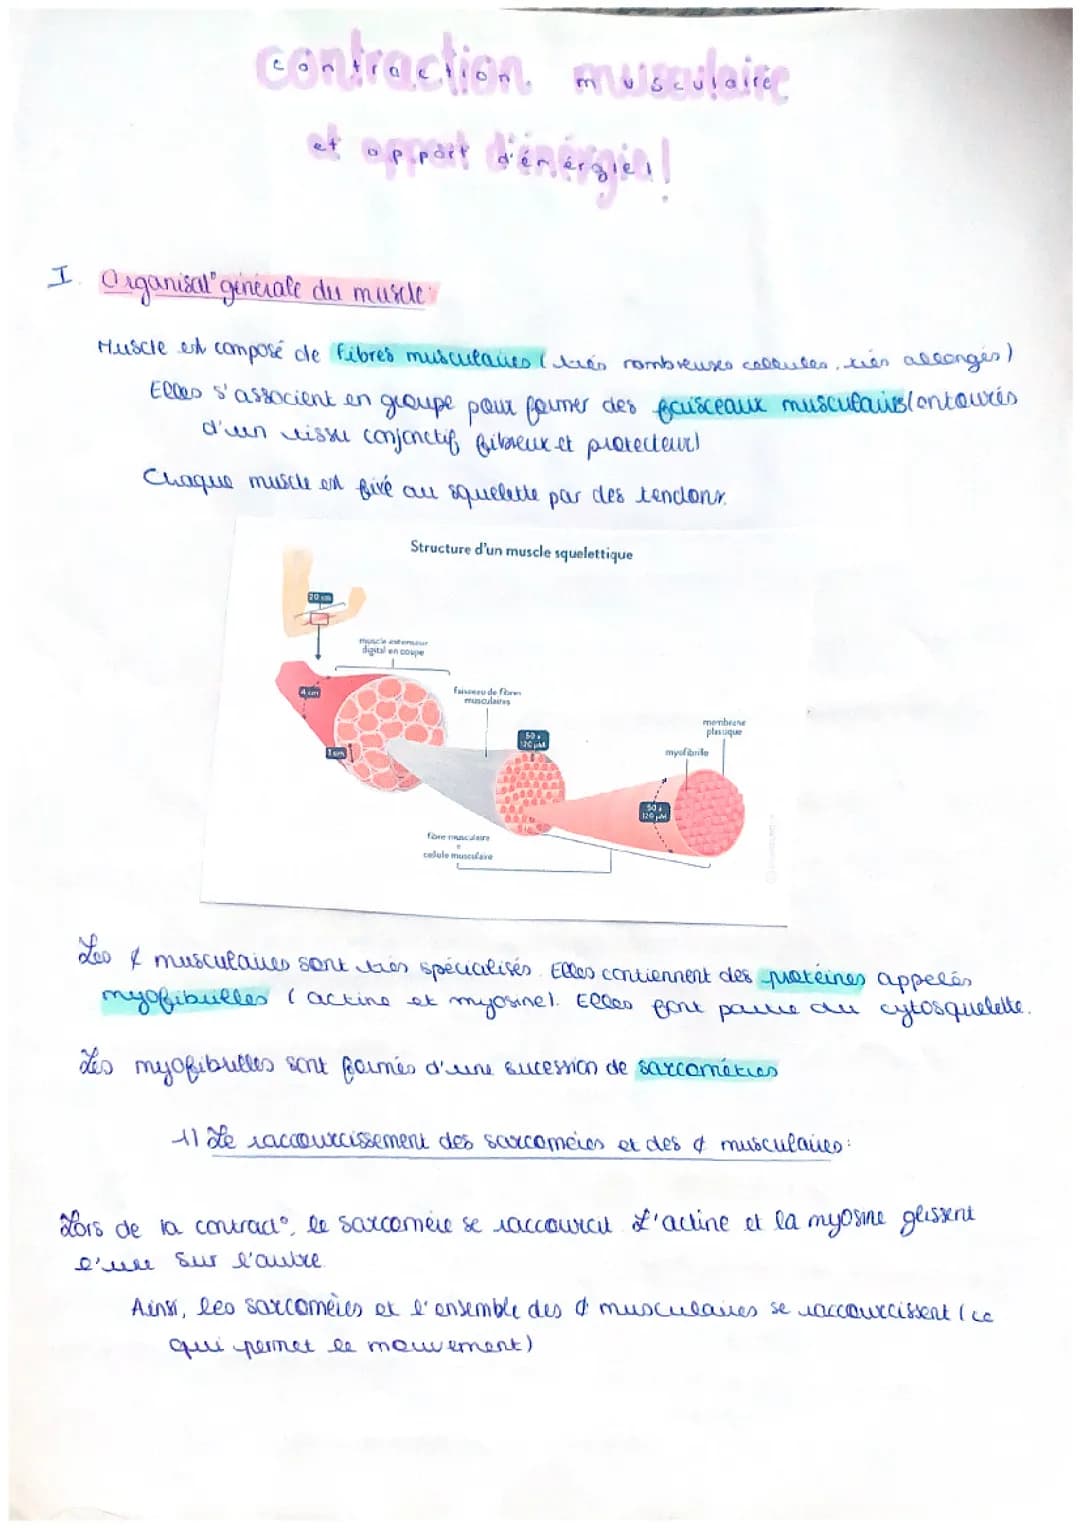 contraction musculaire
et apport d'énérgie !
I. Organisat° générale du muscle:
Muscle est composé de fibres musculaires (très nombreuses cellules, très allongés)
Elles s'associent en groupe pour former des faisceaux musculaires (entourés
d'un tissu conjonctif fibreux et protecteur)
Chaque muscle est fixé au squelette par des tendons.
Structure d'un muscle squelettique
20 cm
muscle extenseur
digital en coupe
4 cm
faisceau de fibres
musculaires
membrane
plasmique
50 à
120 µM
1 cm
myofibrille
50 à
120 µM
fibre musculaire
=
cellule musculaire
Les ¢ musculaires sont très spécialisés. Elles contiennent des protéines appelés
myofibrilles (actine et myosine). Elles font partie du cytosquelette.
Les myofibrilles sont formés d'une sucession de sarcomètres
1) Le raccourcissement des sarcomères et des ¢ musculaires:
Lors de la contract°, le sarcomère se raccourcit. L'actine et la myosine glissent
l'une sur l'autre.
Ainsi, les sarcomères et l'ensemble des ¢ musculaires se raccourcissent (ce
qui permet le mouvement)